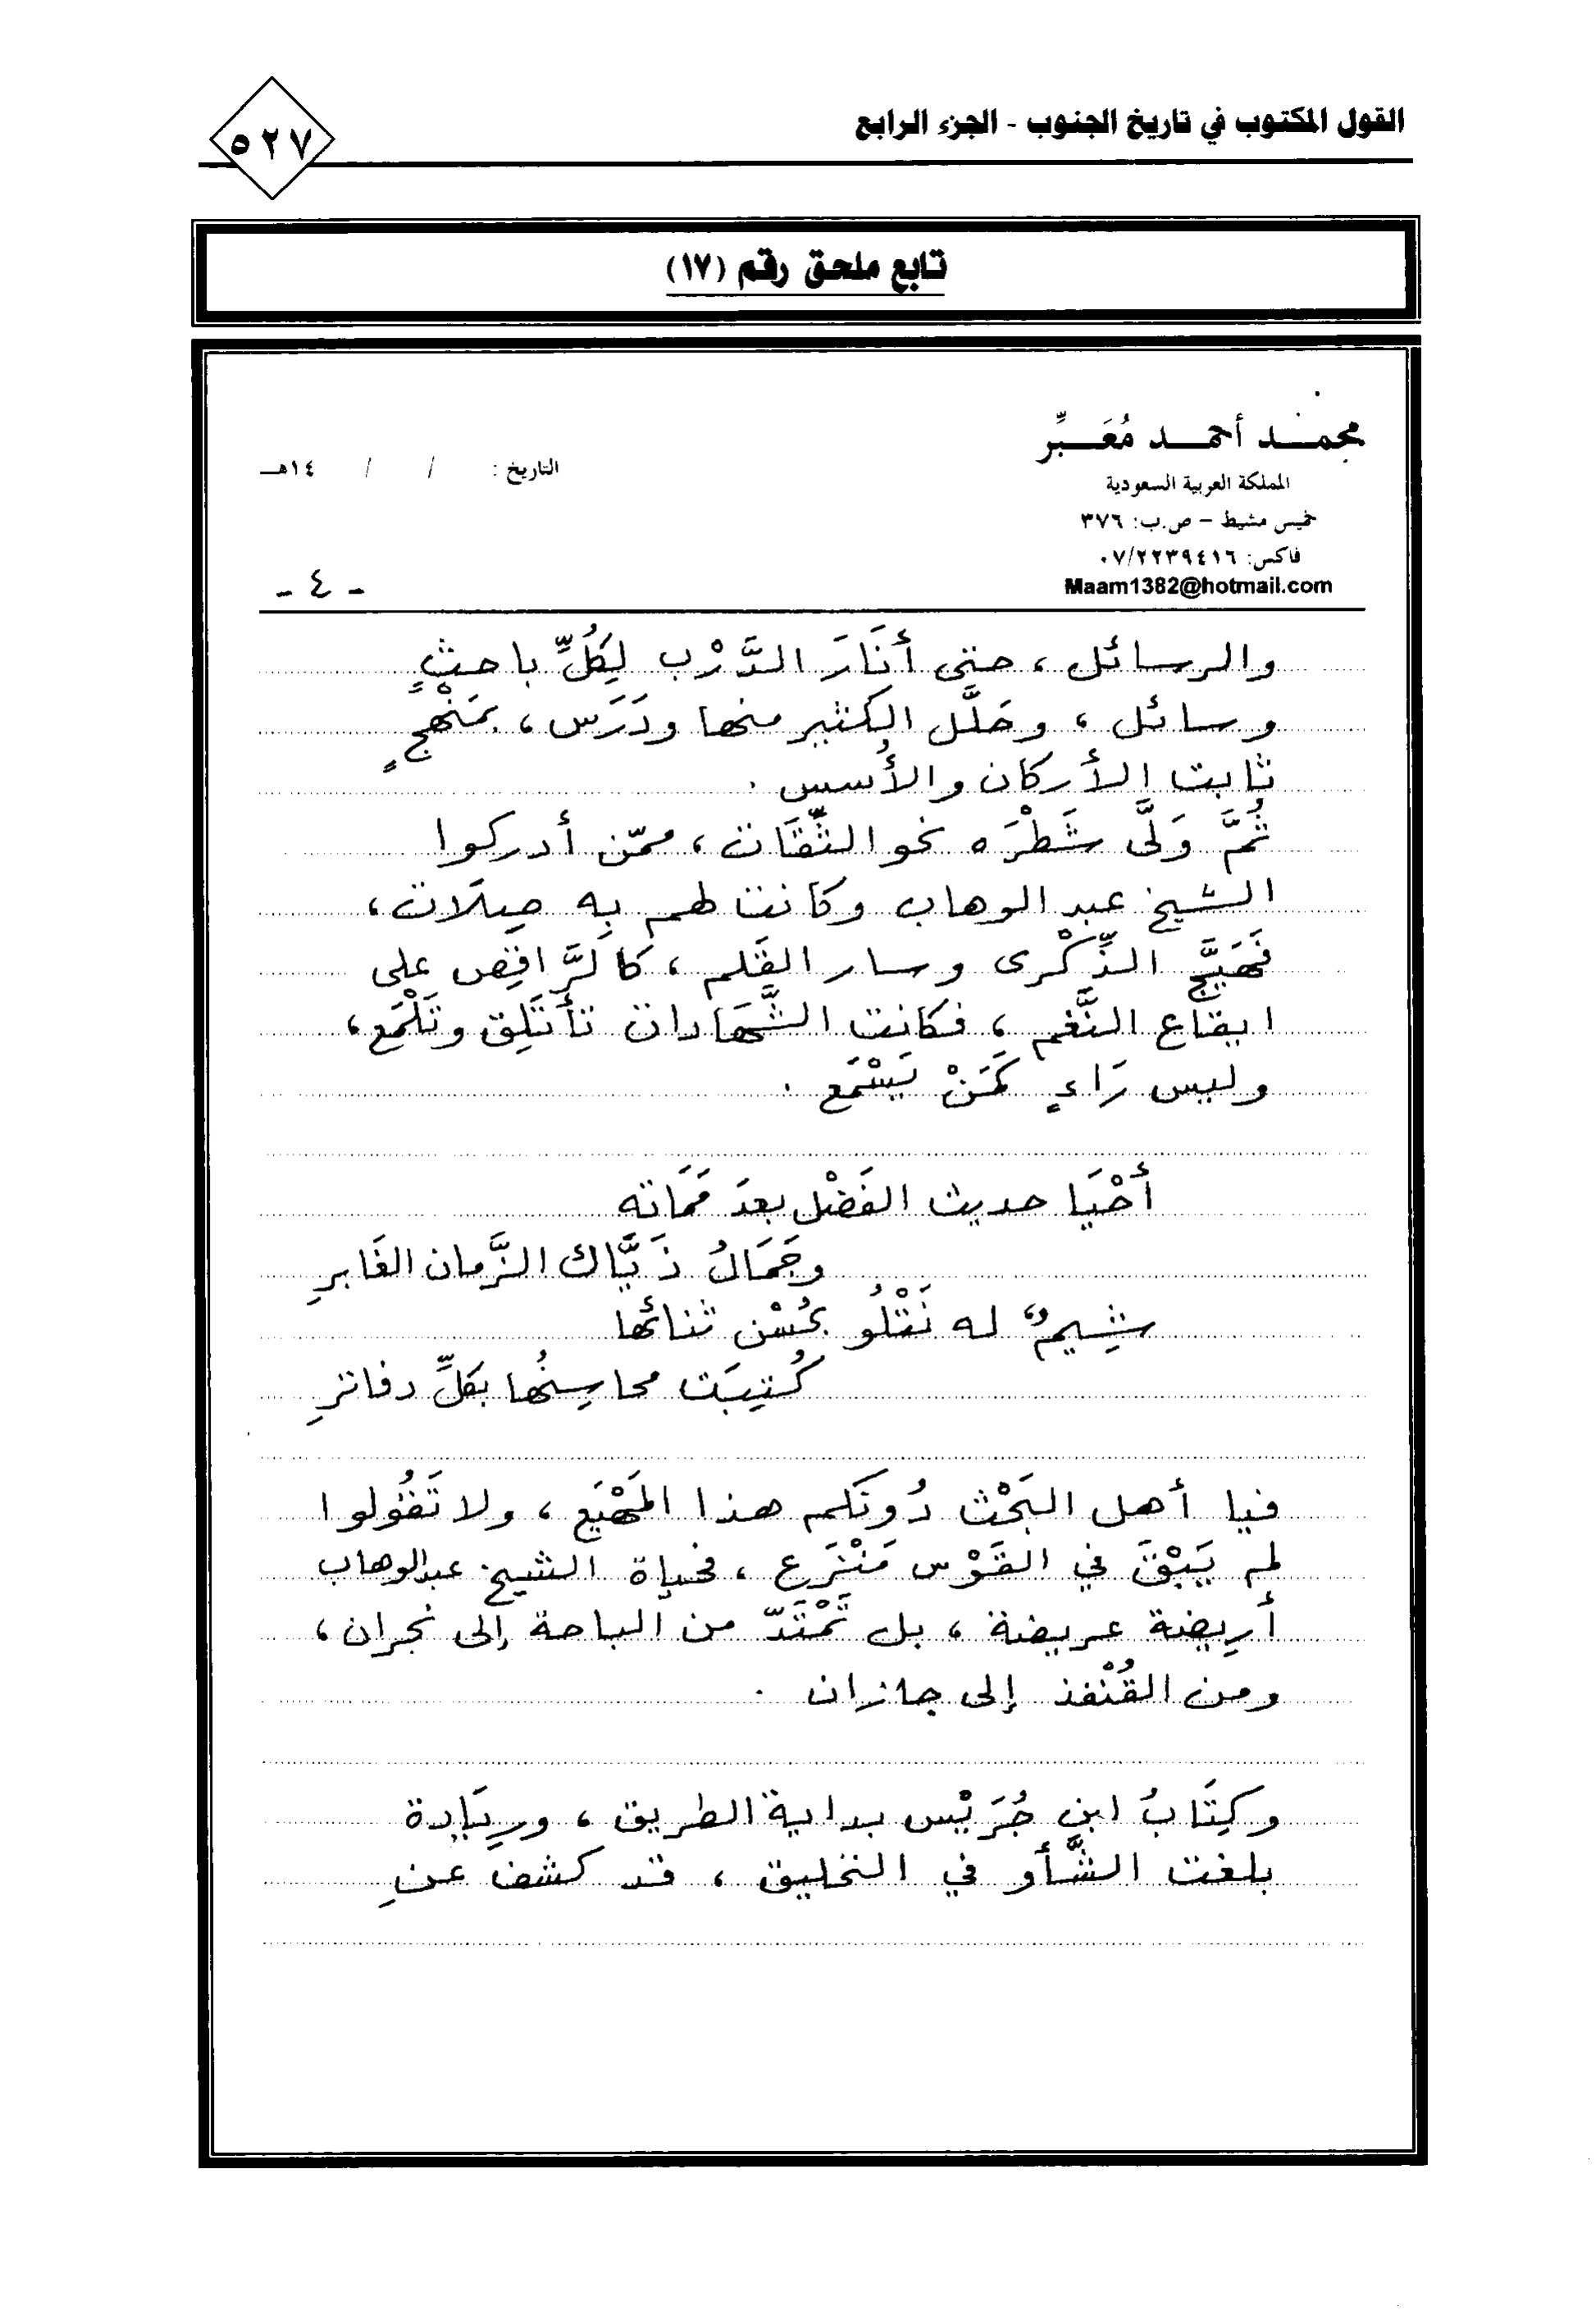 القول المكتوب في تاريخ الجنوب - الجزء الرابع
٥٢٧
تابع ملحق رقم (١٧)
محمد أحمد مُعَبِّر
المملكة العربية السعودية
خميس مشيط – ص.ب: ٣٧٦
فاكس: ٠٧/٢٢٣٩٤١٦
Maam1382@hotmail.com
التاريخ :    /    /    ١٤هـ
- ٤ -
والرسائل ، حتى أنَارَ الدَّرْب لِكُلِّ باحثٍ
وسائل ، وحَلَّل الكثير منها ودَرَس ، بمَنْهجٍ
ثابت الأركان والأُسس .
ثُمَّ وَلَّى شَطْرَه نحو الثِّقَات ، ممّن أدركوا
الشيخ عبد الوهاب وكانت لهم به صِلَات ،
فَهَيَّج الذِّكْرى وسار القَلم ، كالرَّاقص على
ايقاع النَّغم ، فكانت الشَّهَادات تأتَلِق وتَلْمَع ،
وليس رَاءٍ كَمَنْ يَسْمَع .
أحْيَا حديث الفَضْل بعدَ مَمَاته
وجَمَالُ ذَيَّاك الزَّمان الغَابرِ
شِيمٌ له نَتْلُو بحُسْن ثنائها
كُتِبَت محاسِنُها بكلِّ دفاترِ
فيا أهل البَحْث دُونكم هذا المَهْيَع ، ولا تَقُولوا
لم يَبْقَ في القَوْس مَنْزَع ، فحياة الشيخ عبدالوهاب
أرِيضة عريضة ، بل تَمْتَدّ من الباحة إلى نجران ،
ومن القُنْفذ إلى جازان .
وكِتَابُ ابن جُرَيْس بداية الطريق ، ورِيَادة
بلغت الشَّأو في التحليق ، قد كشف عنِ